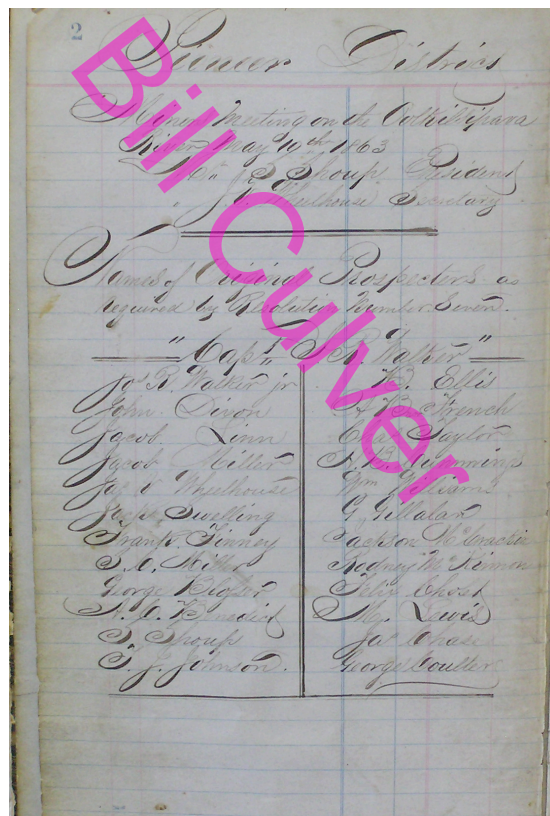 2
Pioneer District
Miners Meeting on the
River May 10th 1863
T. Shoup President
J. V. Wheelhouse Secretary
Names of Original Prospectors as
required by Resolution Number Seven.
" Capt J. R. Walker "
Jos R. Walker jr
John Dixon
Jacob Linn
Jacob Miller
Jas V Wheelhouse
Swelling
Frank Finney
Miller
George Blosser
A. C. Benedict
S. Shoup
T. J. Johnson.
Ellis
French
Taylor
Cummings
Wm Williams
G. Gillalan
Jackson McCrackin
Rodney McKinnon
Felix Cholet
M. Lewis
Jas Chase
George Coulter
Bill Culver